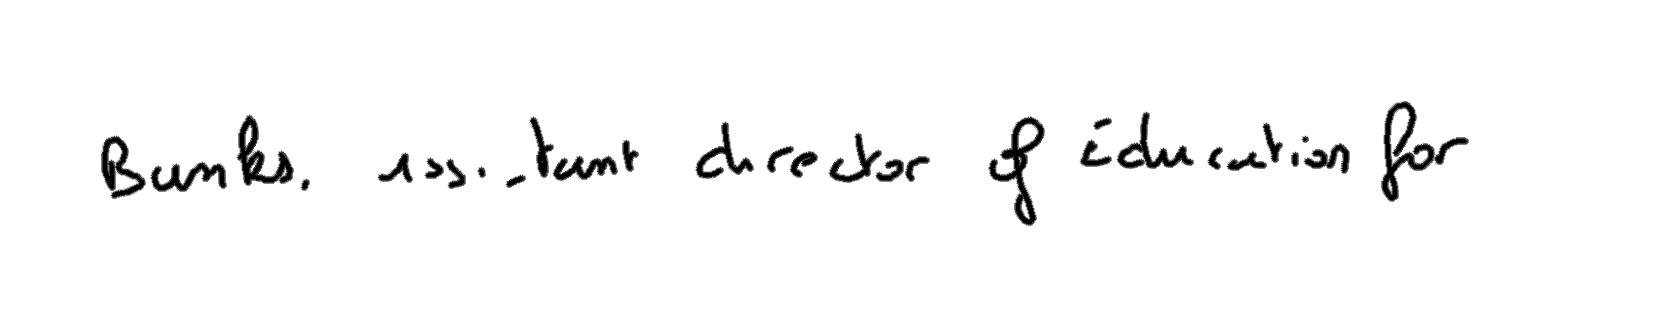 Banks, assistant director of éducation for